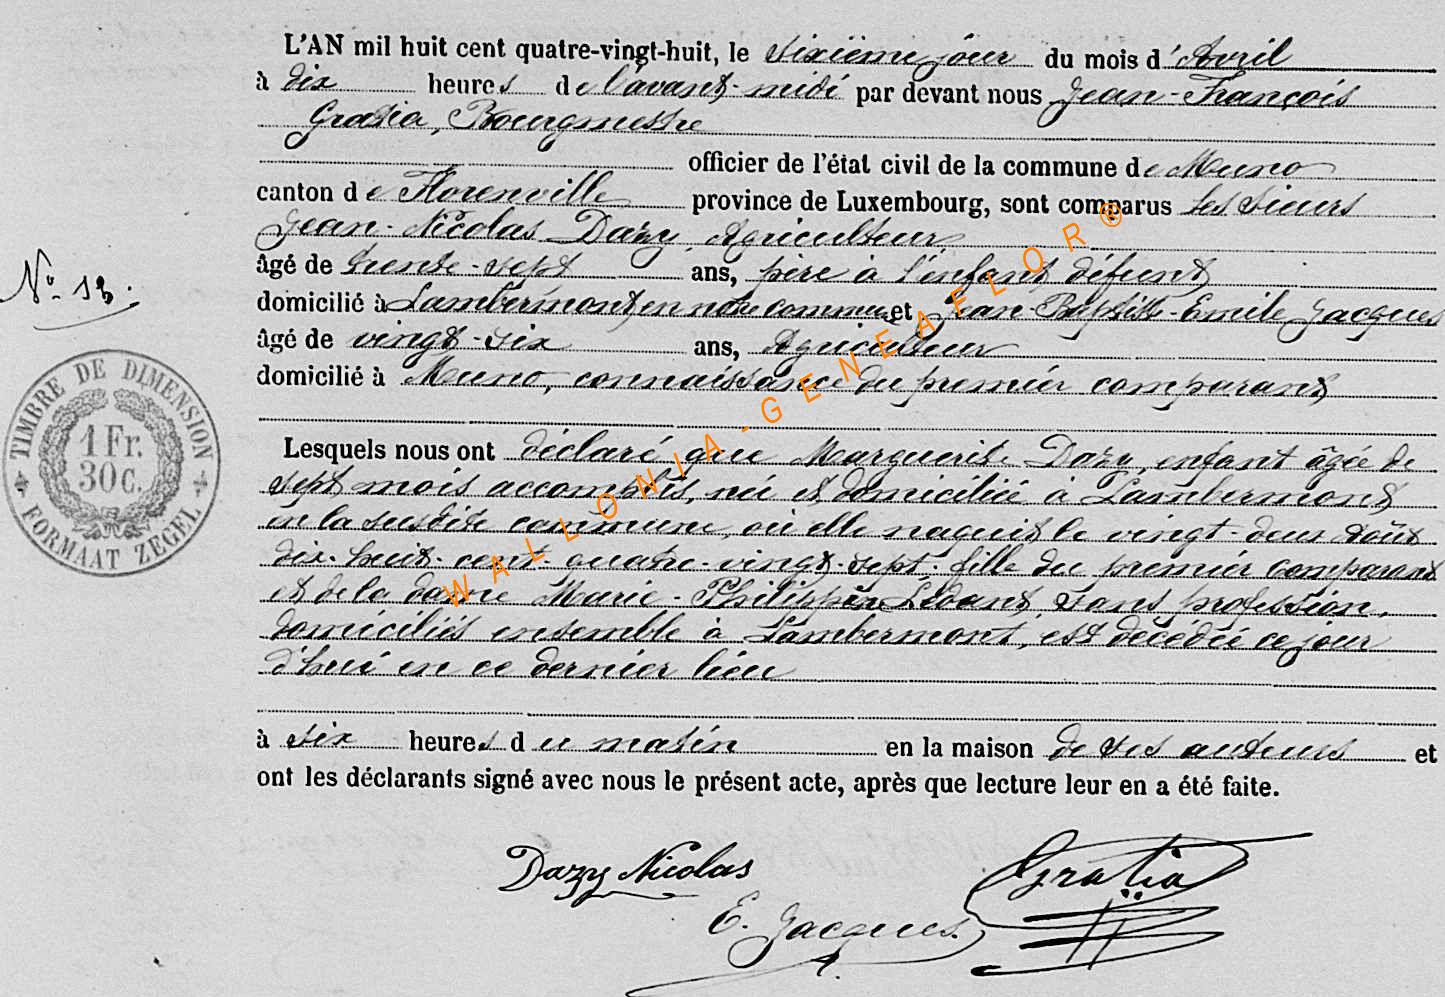 L'AN mil huit cent quatre-vingt-huit, le sixième jour du mois d'Avril
à dix heures de l'avant-midi par devant nous Jean-François
Gratia, Bourgmestre
officier de l'état civil de la commune de Muno
canton de Florenville province de Luxembourg, sont comparus les sieurs
Jean-Nicolas Dazy, Agriculteur
âgé de trente-sept ans, père à l'enfant défunt
domicilié à Lambermont en notre commune et Jean-Baptiste-Emile Jacques
âgé de vingt-six ans, Agriculteur
domicilié à Muno, connaissance du premier comparant
Lesquels nous ont déclaré que Marguerite Dazy, enfant âgée de
sept mois accomplis, née et domiciliée à Lambermont
en la susdite commune, où elle naquit le vingt-deux Août
dix-huit-cent-quatre-vingt-sept, fille du premier comparant
et de la dame Marie-Philippine sans profession,
domiciliés ensemble à Lambermont, est décédée ce jour
d'hui en ce dernier lieu
à six heures du matin en la maison de ses auteurs et
ont les déclarants signé avec nous le présent acte, après que lecture leur en a été faite.
Dazy Nicolas
E. Jacques.
Gratia
No.
TIMBRE DE DIMENSION
1 Fr.
30 C.
FORMAAT ZEGEL
WALLONIA-GENEAFLOR®